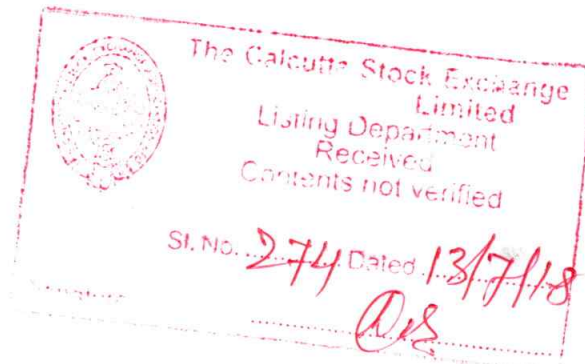 The Calcutta Stock Exchange
Limited
Listing Department
Received
Contents not verified
Sl. No. 274 Dated 13/7/18